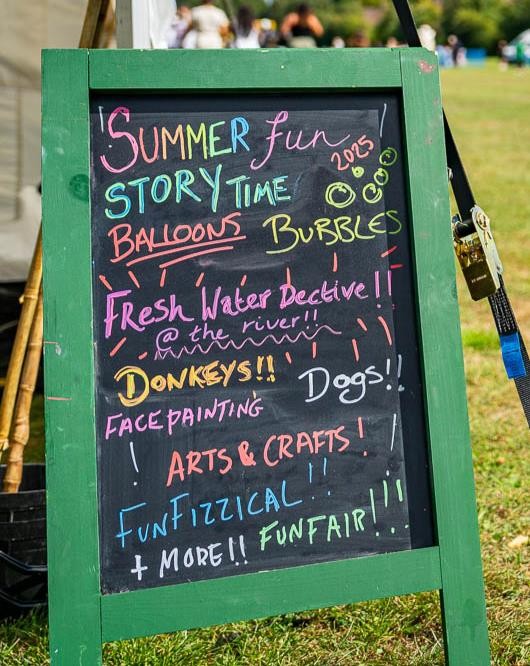 SUMMER fun
2025
STORYTIME
BALLOONS BUBBLES
Fresh Water Dective!!
@ the river!!
DONKEYS!! Dogs!!
FACEPAINTING
! ARTS & CRAFTS!
FUNFIZZICAL!!
+ MORE!! FUNFAIR!!!